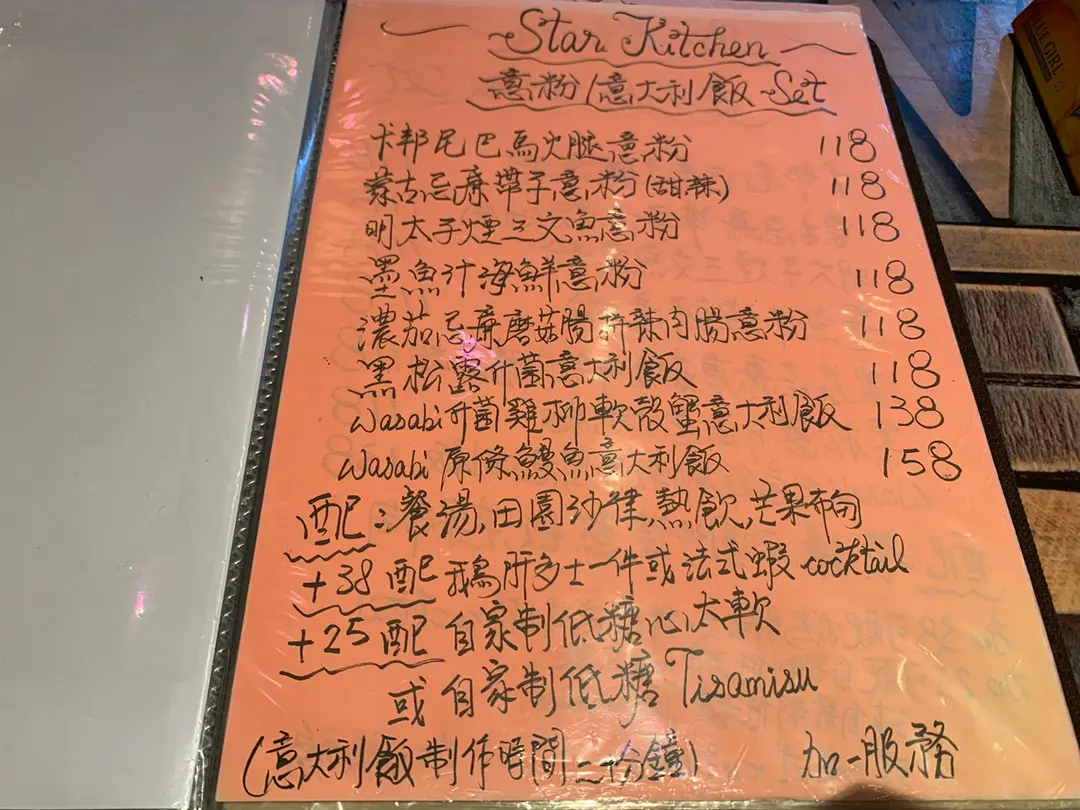 Star Kitchen
意粉/意大利飯 Set
卡邦尼巴馬火腿意粉 118
蒙古忌廉帶子意粉(甜辣) 118
明太子煙三文魚意粉 118
墨魚汁海鮮意粉 118
濃茄忌廉蘑菇腸拼辣肉腸意粉 118
黑松露什菌意大利飯 118
Wasabi什菌雞柳軟殼蟹意大利飯 138
Wasabi 原條鰻魚意大利飯 158
配:餐湯,田園沙律,熱飲,芒果布甸
+38 配 鵝肝多士一件或法式蝦 cocktail
+25 配 自家制低糖心太軟
或 自家制低糖 Tisamisu
(意大利飯制作時間二十分鐘) 加一服務
BLUE GIRL